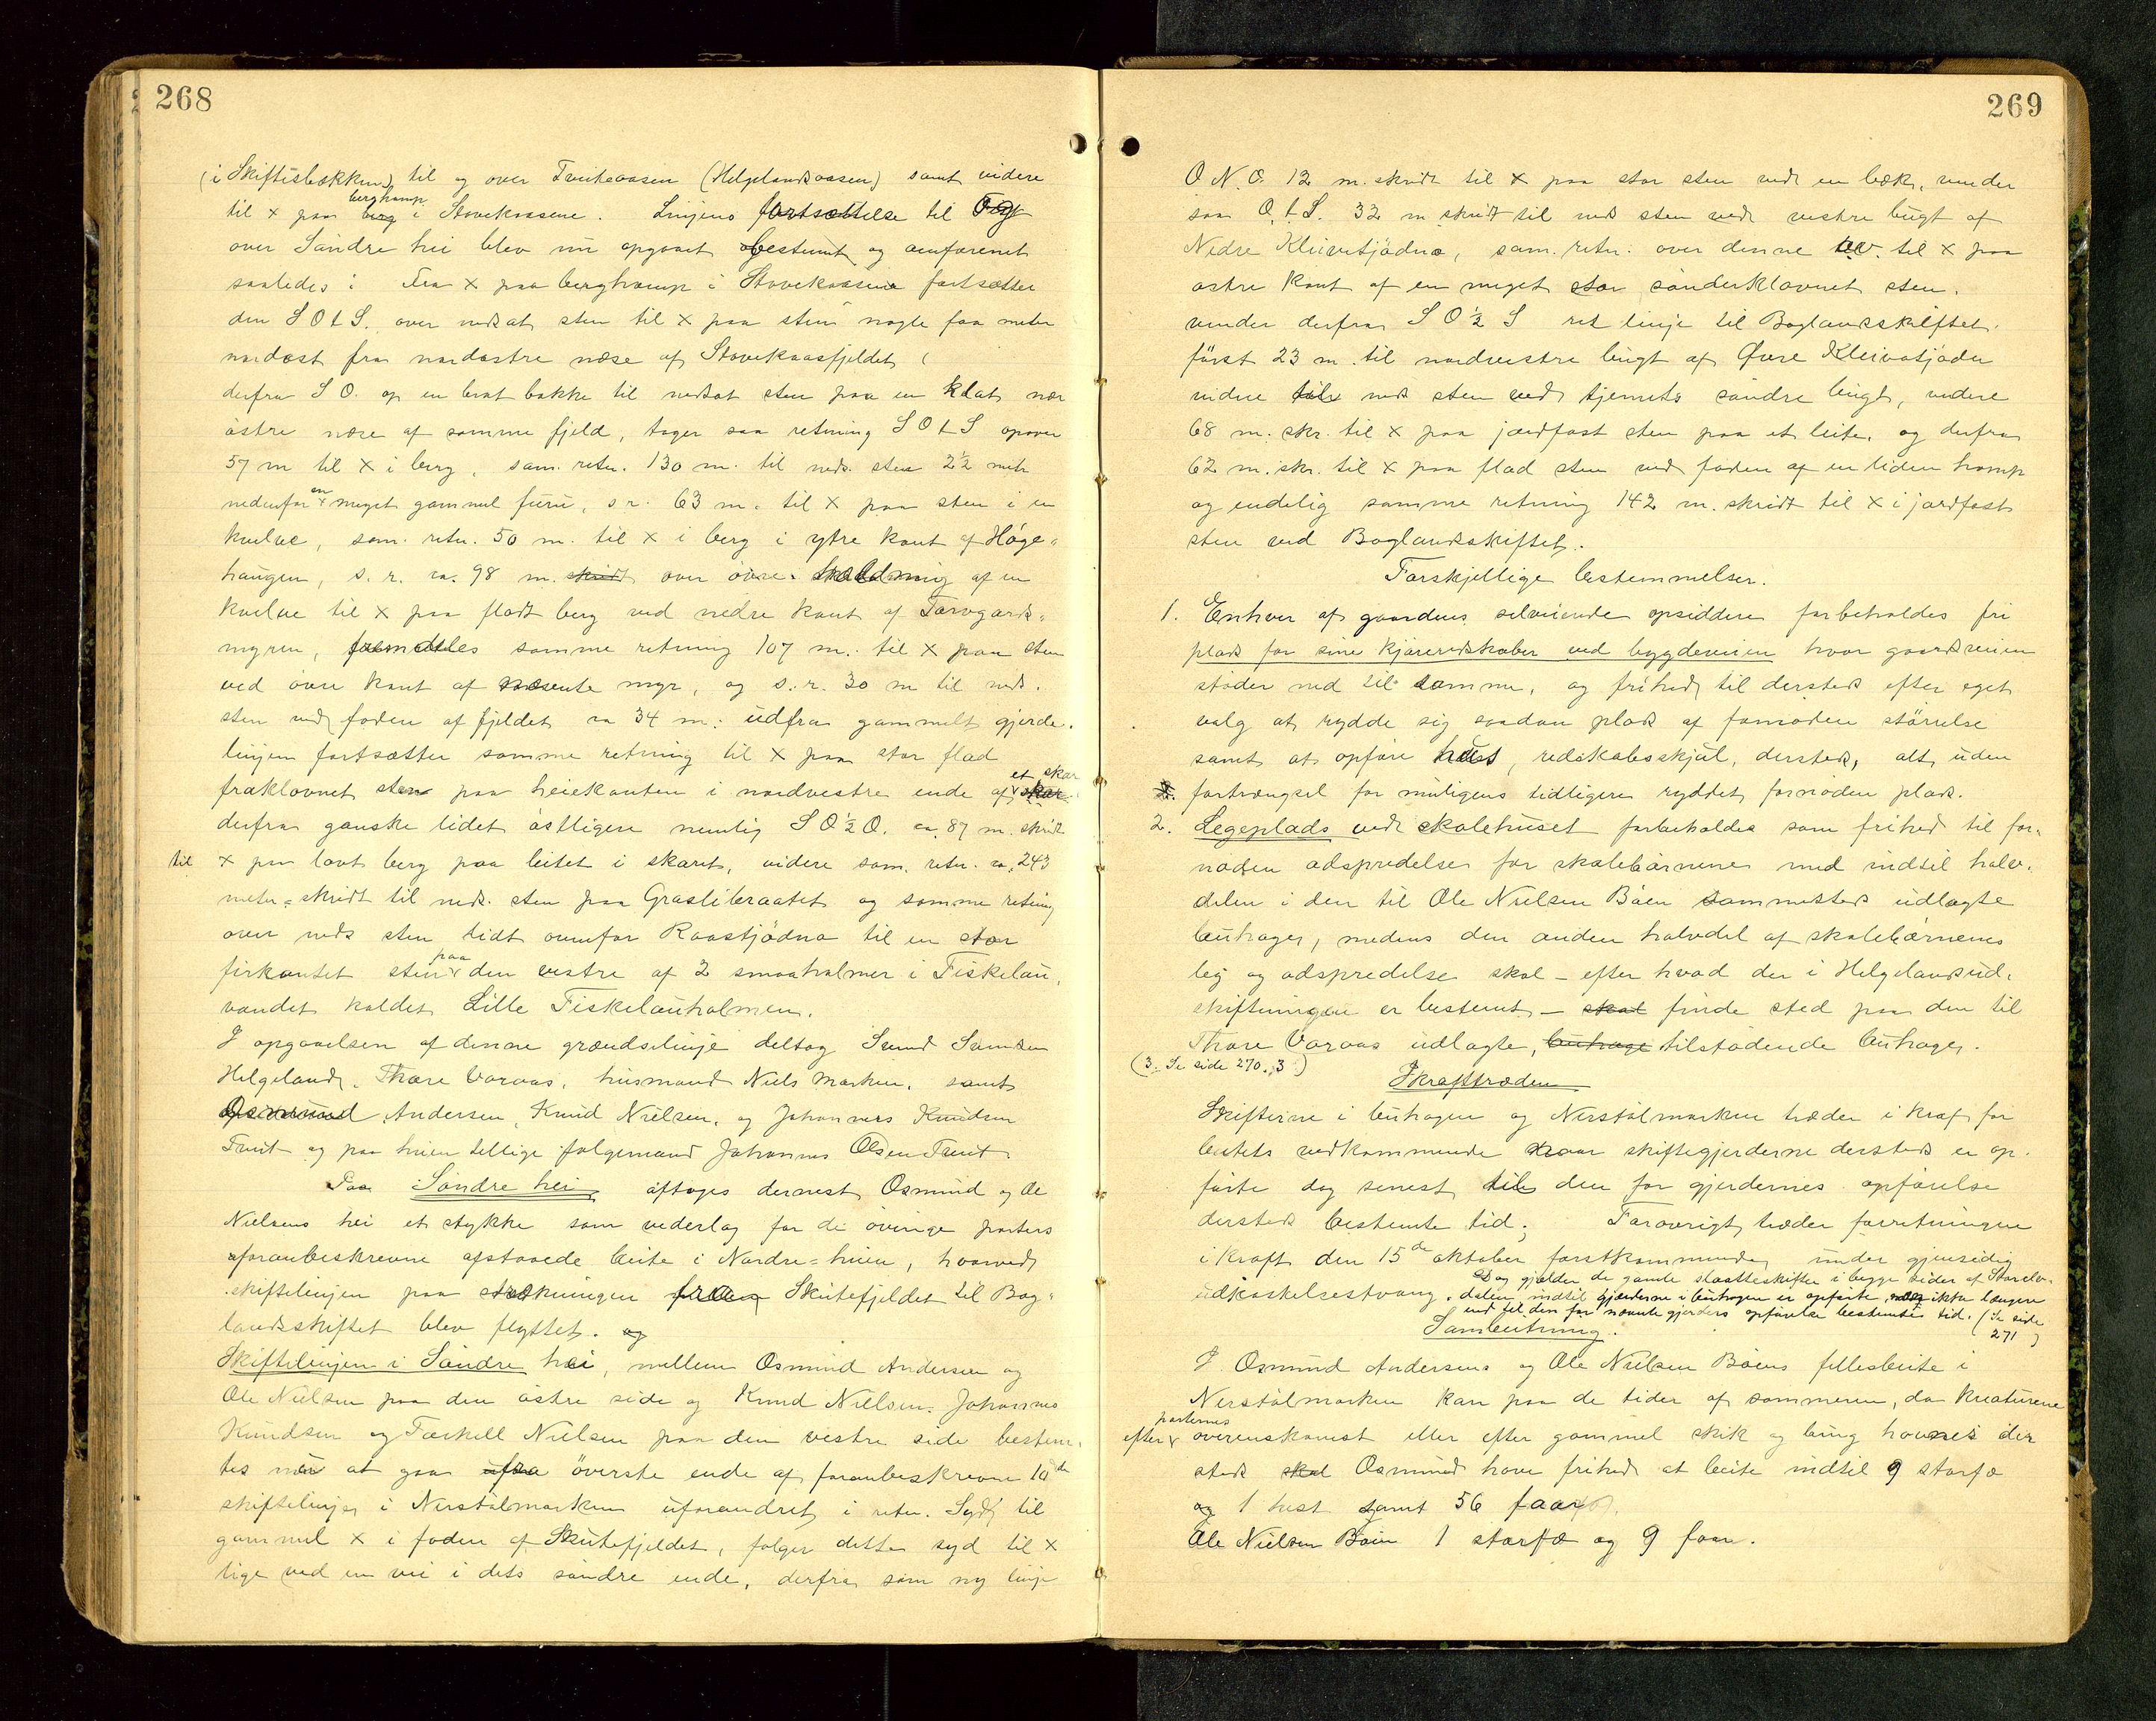 268
(i Skiftisbækken) til og over Tveiteaasen (Helgelandsaasen) samt videre
berghamp
til x paa berg i Stovekaasene. Linjens fortsættelse til
over Søndre hei blev nu opgaaet bestemt og omforenet
saaledes: Fra x paa berghamp i Stovekaasene fortsætter
den S O t S. over nedsat sten til x paa sten nogle faa meter
nordost fra nordøstre næse af Stovekaasfjeldet,
derfra S O. op en brat bakke til nedsat sten paa en klat nær
østre næse af samme fjeld, tager saa retning S O t S opover
57 m til x i berg, sam. retn. 130 m. til neds. sten 2½ metr
nedenfor en meget gammel furu, s r. 63 m. til x paa sten i en
kvelve, sam. retn. 50 m. til x i berg i ytre kant af Høge-
haugen, s. r. ca. 98 m. skridt over øvre af en
kvelve til x paa fladt berg ved nedre kant af Torvgards-
myren, fremdeles samme retning 107 m. til x paa sten
ved øvre kant af nævnte myr, og s. r. 30 m til neds.
sten ved foden af fjeldet ca 34 m. udfra gammelt gjerde.
linjen fortsætter samme retning til x paa stor flad
et skar
fraklovnet sten paa heiekanten i nordvestre ende af skar.
derfra ganske lidet østligere nemlig S O ½ O. ca. 87 m. skridt
til x paa lavt berg paa leitet i skaret, videre sam. retn. ca. 243
meter-skridt til neds. sten paa Graslibraatet og samme retning
over neds sten lidt ovenfor Raastjødna til en stor
paa
firkantet sten den vestre af 2 smaaholmer i Fiskelau-
vandet kaldet Lille Fiskelauholmen.
I opgaaelsen af denne grændselinje deltog Svend Samsen
Helgeland, Thore Varaas, husmand Niels Marken, samt
Osmund Andersen, Knud Nielsen, og Johannes Knudsen
Tveit og paa heien tillige følgemand Johannes Olsen Tveit.
Paa Søndre hei aftoges dernest Osmund og Ole
Nielsens hei et stykke som vederlag for de øvrige parters
foranbeskrevne afstaaede beite i Nordre-heien, hvorved
skiftelinjen paa strækningen fra Skutefjeldet til Bog-
landsskiftet blev flyttet. og
Skiftelinjen i Søndre hei, mellem Osmund Andersen og
Ole Nielsen paa den østre side og Knud Nielsen, Johannes
Knudsen og Torkell Nielsen paa den vestre side bestem-
tes nu at gaa fra øverste ende af foranbeskrevne 10de
skiftelinje i Nerstølmarken uforandret i retn. Syd til
gammel x i foden af Skutefjeldet, følger dette syd til x
lige ved en vei i dets søndre ende, derfra som ny linje
269
O N. O. 12 m. skridt til x paa stor sten ved en bæk, vender
saa O. t S. 32 m skridt til neds sten ved vestre bugt af
Nedre Kleivetjødna, sam. retn. over denne til x paa
østre kant af en meget stor sønderklovnet sten,
vender derfra S O ½ S ret linje til Boglandsskiftet.
først 23 m. til nordvestre bugt af Øvre Kleivatjødn
videre til neds sten ved tjernets søndre bugt, videre
68 m. skr. til x paa jordfast sten paa et leite, og derfra
62 m. skr. til x paa flad sten ved foden af en liden hamp
og endelig samme retning 142 m. skridt til x i jordfast
sten ved Boglandsskiftet.
Forskjellige bestemmelser.
1. Enhver af gaardens selveiende opsiddere forbeholdes fri
plads for sine kjøreredskaber ved bygdeveien hvor gaardsveien
støder ned til samme, og frihed til dersteds efter eget
valg at rydde sig saadan plads af fornøden størrelse
samt at opføre hus, redskabsskjul, dersteds, alt uden
fortrængsel for muligens tidligere ryddet fornøden plads.
2. Legeplads ved skolehuset forbeholdes som frihed til for-
nøden adspredelse for skolebørnene med indtil halv-
delen i den til Ole Nielsen Bøen sammesteds udlagte
buhage, medens den anden halvdel af skolebørnenes
leg og adspredelse skal - efter hvad der i Helgelandsud-
skiftningen er bestemt - skal finde sted paa den til
Thore Varaas udlagte, buhage tilstødende buhage.
(3. Se side 270. 3)
Ikrafttræden
Skifterne i buhagen og Nerstølmarken træder i kraft for
beitets vedkommende naar skiftegjerderne dersteds er op-
førte dog senest til den for gjerdernes opførelse
dersteds bestemte tid; Forøvrigt træder forretningen
i kraft den 15de oktober førstkommende under gjensidig
udkaskelsestvang. Dog gjælder de gamle slaatteskifter i begge sider af Storelv-
dalen indtil gjerderne i buhagen er opførte, ikke længere
end til den for nævnte gjerders opførelse bestemte tid. (Se side
271)
Sambeitning.
I Osmund Andersens og Ole Nielsen Bøens fellesbeite i
Nerstølmarken kan paa de tider af sommeren, da kreaturene
parternes
efter overenskomst eller efter gammel skik og brug havnes der
steds skal Osmund have frihed at beite indtil 9 storfæ
og 1 hest samt 56 faar.
Ole Nielsen Bøen 1 storfæ og 9 faar.